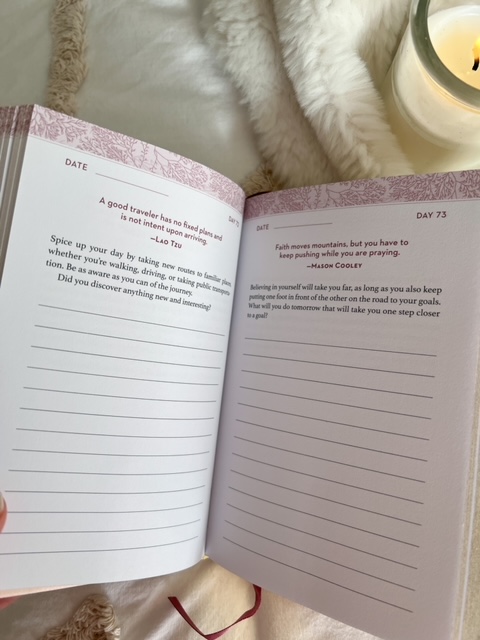 DATE
DAY 72
A good traveler has no fixed plans and
is not intent upon arriving.
—Lao Tzu
Spice up your day by taking new routes to familiar places
whether you're walking, driving, or taking public
tion. Be as aware as you can of the journey.
Did you discover anything new and interesting?
DATE
DAY 73
Faith moves mountains, but you have to
keep pushing while you are praying.
—Mason Cooley
Believing in yourself will take you far, as long as you also keep
putting one foot in front of the other on the road to your goals.
What will you do tomorrow that will take you one step closer
to a goal?